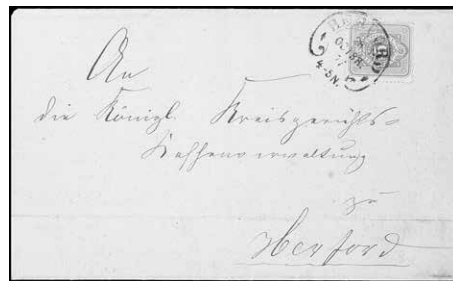 An
die Königl. Kreisgerichts-
Kassenverwaltung
zu
Herford
4-5N.